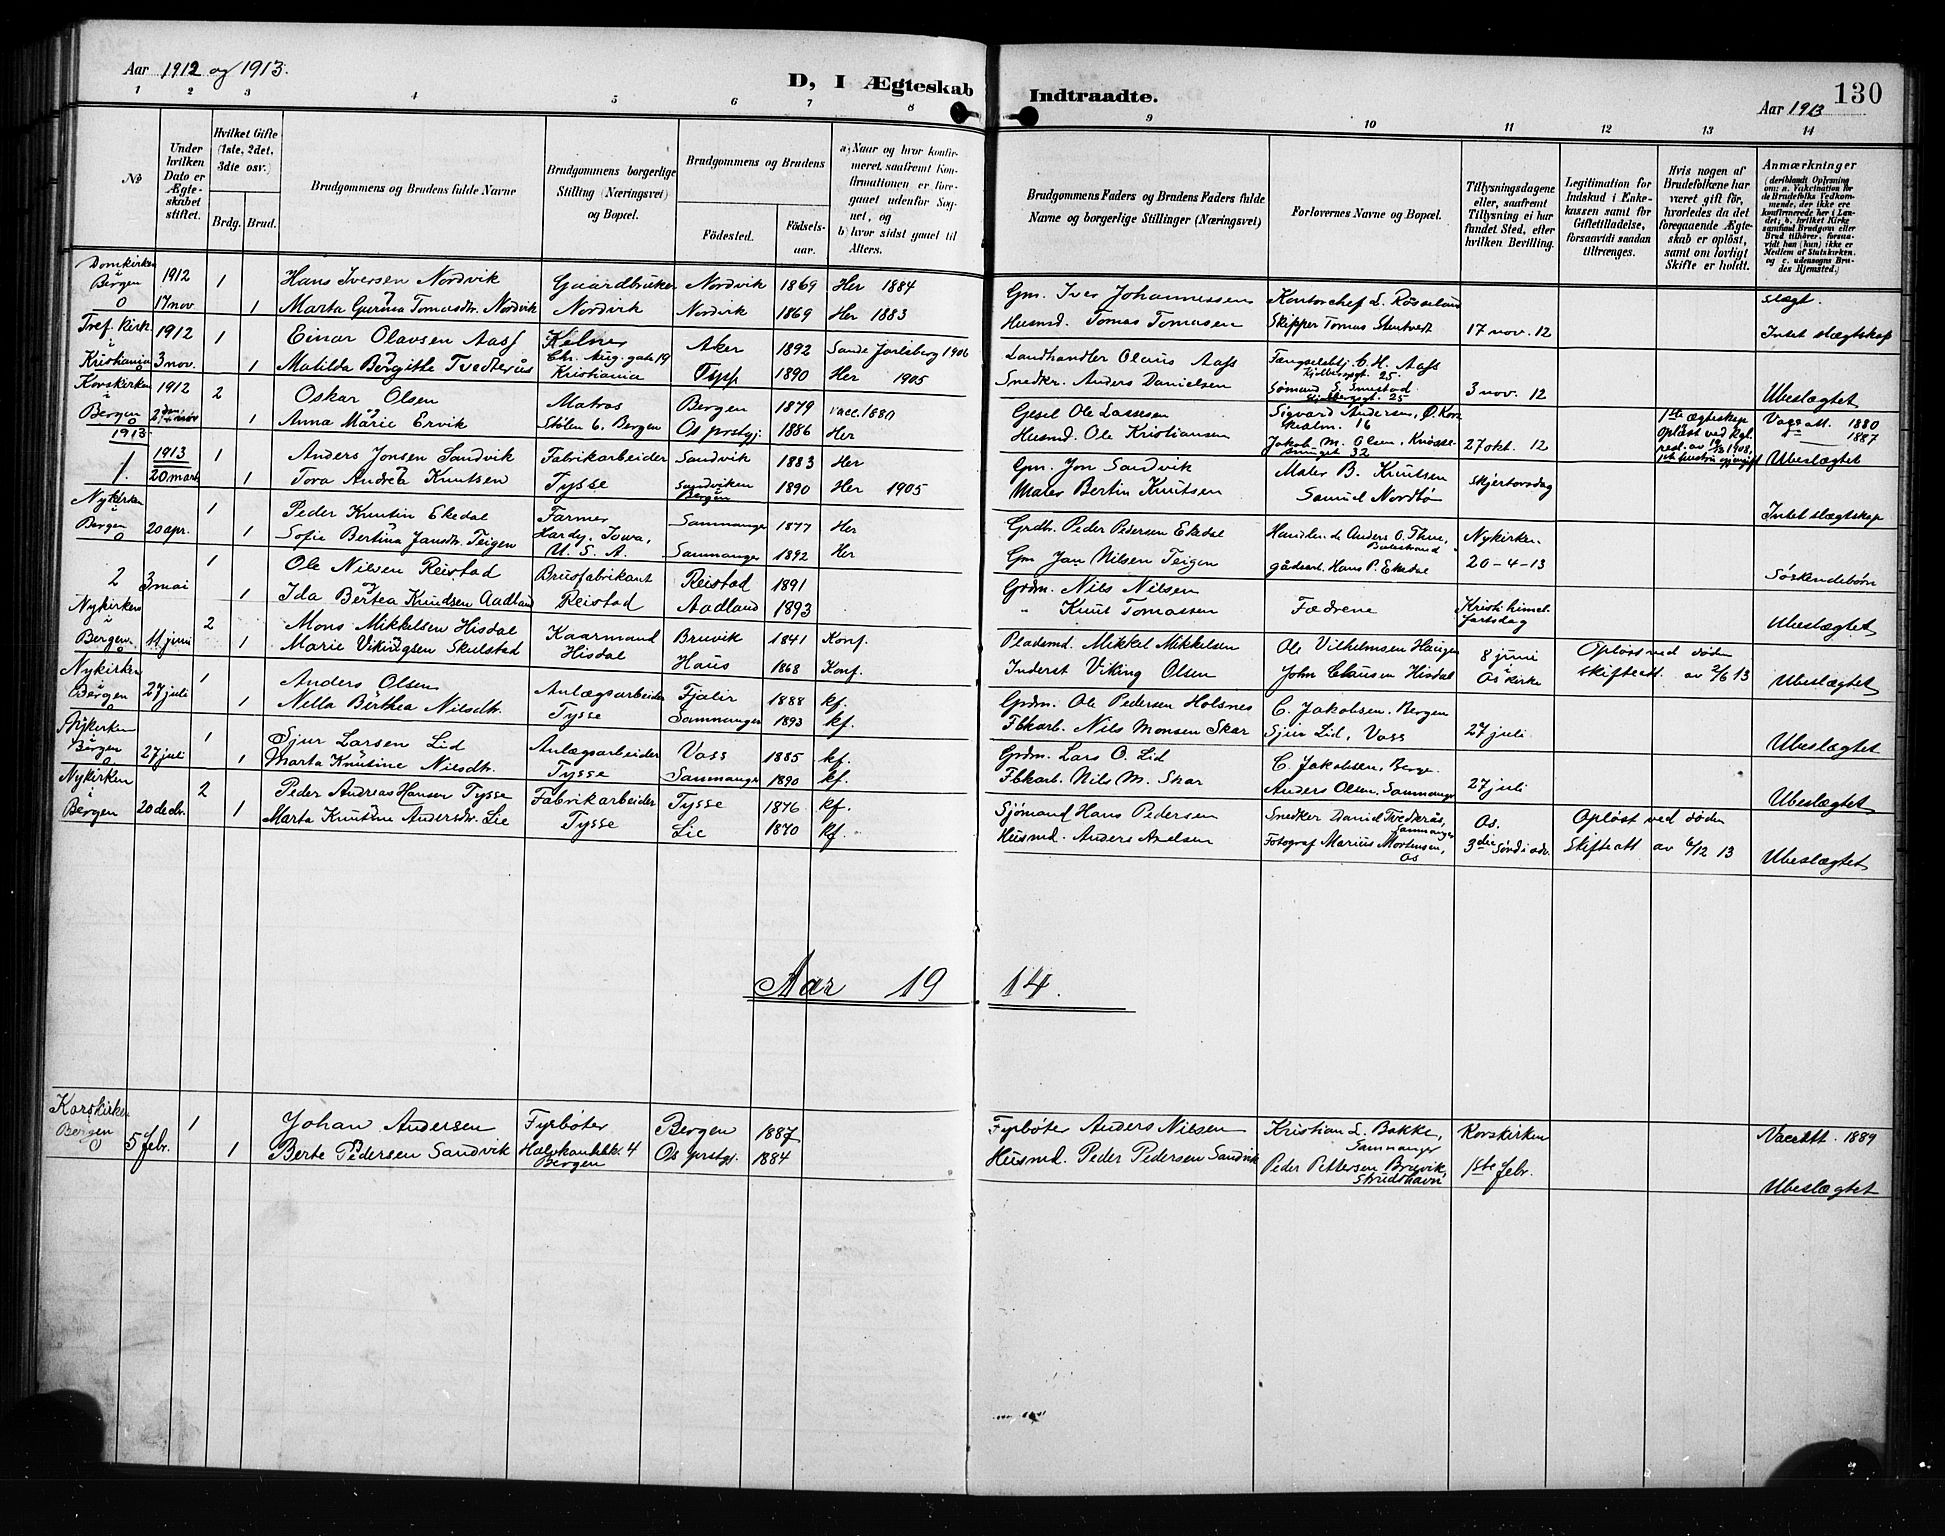 Aar 1912 og 1913.
D, I Ægteskab Indtraadte.
Aar 1913
130
1 2 3 4 5 6 7 8 9 10 11 12 13 14
No
Under hvilken Dato er Ægteskabet stiftet.
Hvilket Gifte (1ste, 2det, 3die osv.)
Brdg. Brud.
Brudgommens og Brudens fulde Navne
Brudgommens borgerlige Stilling (Næringsvei) og Bopæl.
Brudgommens og Brudens
Födested. Födselsaar.
a) Naar og hvor konfirmeret, saafremt Konfirmationen er foregaaet udenfor Sognet, og
b) hvor sidst gaaet til Alters.
Brudgommens Faders og Brudens Faders fulde Navne og borgerlige Stillinger (Næringsvei)
Forlovernes Navne og Bopæl.
Tillysningsdagene eller, saafremt Tillysning ei har fundet Sted, efter hvilken Bevilling.
Legitimation for Indskud i Enkekassen samt for Giftetilladelse, forsaavidt saadan tiltrænges.
Hvis nogen af Brudefolkene har været gift för, hvorledes da det foregaaende Ægteskab er oplöst, samt om lovligt Skifte er holdt.
Anmærkninger
(deriblandt Oplysning om: a. Vakcination for de Brudefolks Vedkommende, der ikke ere konfirmerede her i Landet; b. hvilket Kirkesamfund Brudgom eller Brud tilhører, forsaavidt han (hun) ikke er Medlem af Statskirken, og c. udensogns Brudes Hjemsted.)
Domkirken i Bergen 1912 17 nov 1 Hans Iversen Nordvik Gaardbruker Nordvik 1869 Her 1884 Gm. Iver Johannessen Kontorchef L. Røsseland slægt.
1 Marta Gurina Tomasdtr. Nordvik Nordvik Nordvik 1869 Her 1883 Husmd. Tomas Tomasen Skipper Tomas Stentvedt 17 nov. 12 Intet slægtskap
Tref. kirk i Kristiania 1912 3 nov. 1 Einar Olavsen Aass Kelner Aker 1892 Sande Jarlsberg 1906 Landhandler Olaus Aass Fængselsbtj. C. H. Aass
1 Matilda Bergitte Tvedterås Chr. Aug. gate 19 Kristiania 1890 Her 1905 Snedkr. Anders Danielsen Sømand S. Smestad 3 nov. 12 Ubeslægtet
Korskirken i Bergen 1912 2 Oskar Olsen Matros Bergen 1879 vacc. 1880 Gesel Ole Lassesen Sigvard Andersen, 16 1ste ægteskap opløst ved kgl. res. av 1908 Vacc. att. 1880
1 Anna Marie Ervik Skolen 6, Bergen Os prstgj. 1886 Her Husmd. Ole Kristiansen Jakob M. Olsen, 32 27 okt. 12 1887 Ubeslægtet
1913
1. 1913 20 mart 1 Anders Jonsen Sandvik Fabrikarbeider Sandvik 1883 Her Gm. Jon Sandvik Maler B. Knutsen
1 Tora Andrea Knutsen Tysse Sandviken Bergen 1890 Her 1905 Maler Bertin Knutsen Samuel Nordbø skjertorsdag Intet slægtskap
Nykirken i Bergen 20 apr. 1 Peder Knutin Ekedal Farmer Samnanger 1877 Her Grdb. Peder Pedersen Ekedal Handlende Anders O. Thue, Balestrand Nykirken
1 Sofie Bertina Jansdtr. Teigen Hardy, Iowa, U. S. A. Samnanger 1892 Her Gm Jan Nilsen Teigen gådsarb. Hans P. Ekedal 20-4-13 Søskendebørn
2 3 mai 1 Ole Nilsen Reistad Brusfabrikant Reistad 1891 Grdm. Nils Nilsen
1 Ida Bertea Knudsen Aadland Reistad Aadland 1893 " Knut Tomassen Fædrene Kristi himmelfartsdag Ubeslægtet
Nykirken i Bergen 11 juni 2 Mons Mikkelsen Hisdal Kaarmand Bruvik 1841 Konf. Pladsmd. Mikkel Mikkelsen Ole Vilhelmsen Haugen 8 juni Opløst ved døden
1 Marie Vikingsen Skulstad Hisdal Haus 1868 Konf. Inderst Viking Olsen John Clausen Hisdal Os kirke skifteatt. av 2/6 13 Ubeslægtet
Nykirken i Bergen 27 juli 1 Anders Olsen Anlægsarbeider Fjaler 1888 kf. Grdm. Ole Pedersen Holsnes C. Jakobsen, Bergen
1 Nella Berthea Nilsdtr. Tysse Samnanger 1893 kf. Fbkarb. Nils Monsen Skar Sjur Lid, Voss 27 juli Ubeslægtet
Nykirken i Bergen 27 juli 1 Sjur Larsen Lid Anlægsarbeider Voss 1885 kf. Grdm. Lars O. Lid C. Jakobsen, Berge.
1 Marta Knutine Nilsdtr. Tysse Samnanger 1890 kf. Fbkarb. Nils M. Skar Anders Olsen, Samnanger 27 juli Ubeslægtet
Nykirken i Bergen 20 decbr. 2 Peder Andreas Hansen Tysse Fabrikarbeider Tysse 1876 kf. Sjømand Hans Pedersen Snedker Daniel Tvedterås, Samnanger Os. Opløst ved døden
1 Marta Knutine Andersdtr. Lie Tysse Lie 1870 kf. Husmd. Anders Anelsen Fotograf Marius Mortensen, Os 3die Sønd i adv. Skifteatt av 6/12 13 Ubeslægtet
Aar 1914.
Korskirken i Bergen 5 febr. 1 Johan Andersen Fyrbøter Bergen 1887 Fyrbøter Anders Nilsen Kristian L. Bakke, Samnanger Korskirken Vaccatt. 1889
1 Berte Pedersen Sandvik 4 Bergen Os prstgj. 1884 Husmd. Peder Pedersen Sandvik Peder Pettersen Bruvik, Strudshavn 1ste febr. Ubeslægtet